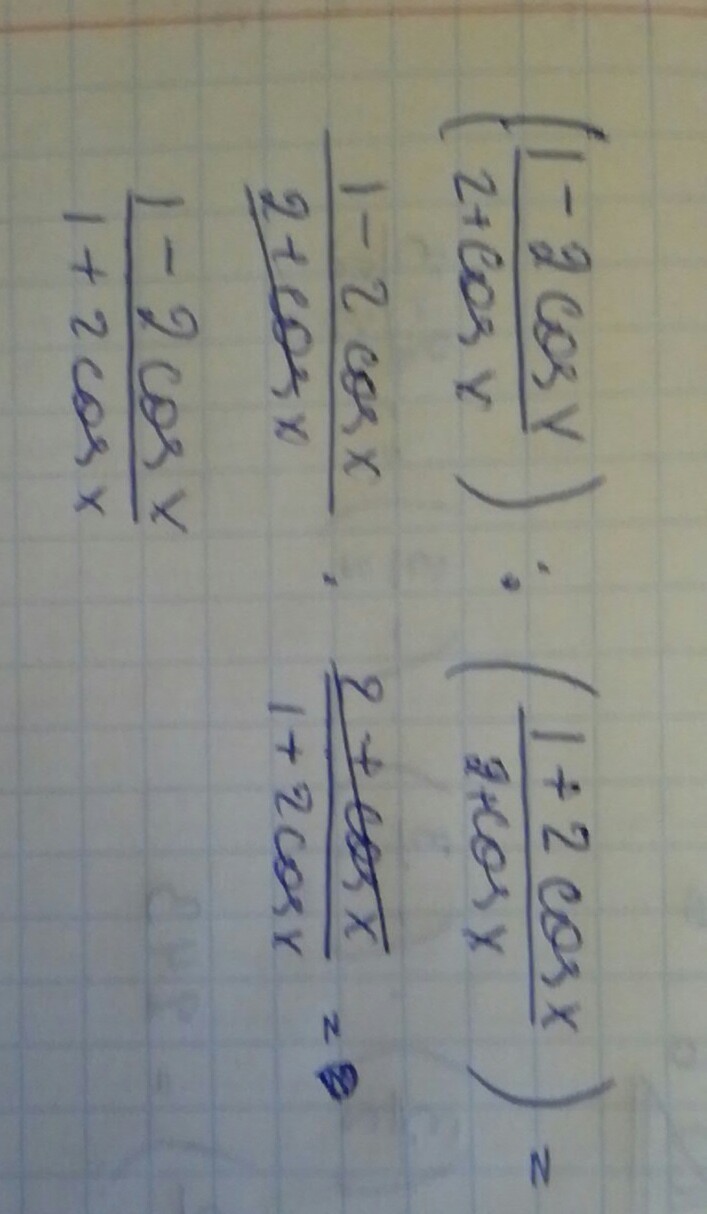 (1 - 2 cos x / 2 + cos x) : (1 + 2 cos x / 2 + cos x) =
1 - 2 cos x / 2 + cos x · 2 + cos x / 1 + 2 cos x =
1 - 2 cos x / 1 + 2 cos x